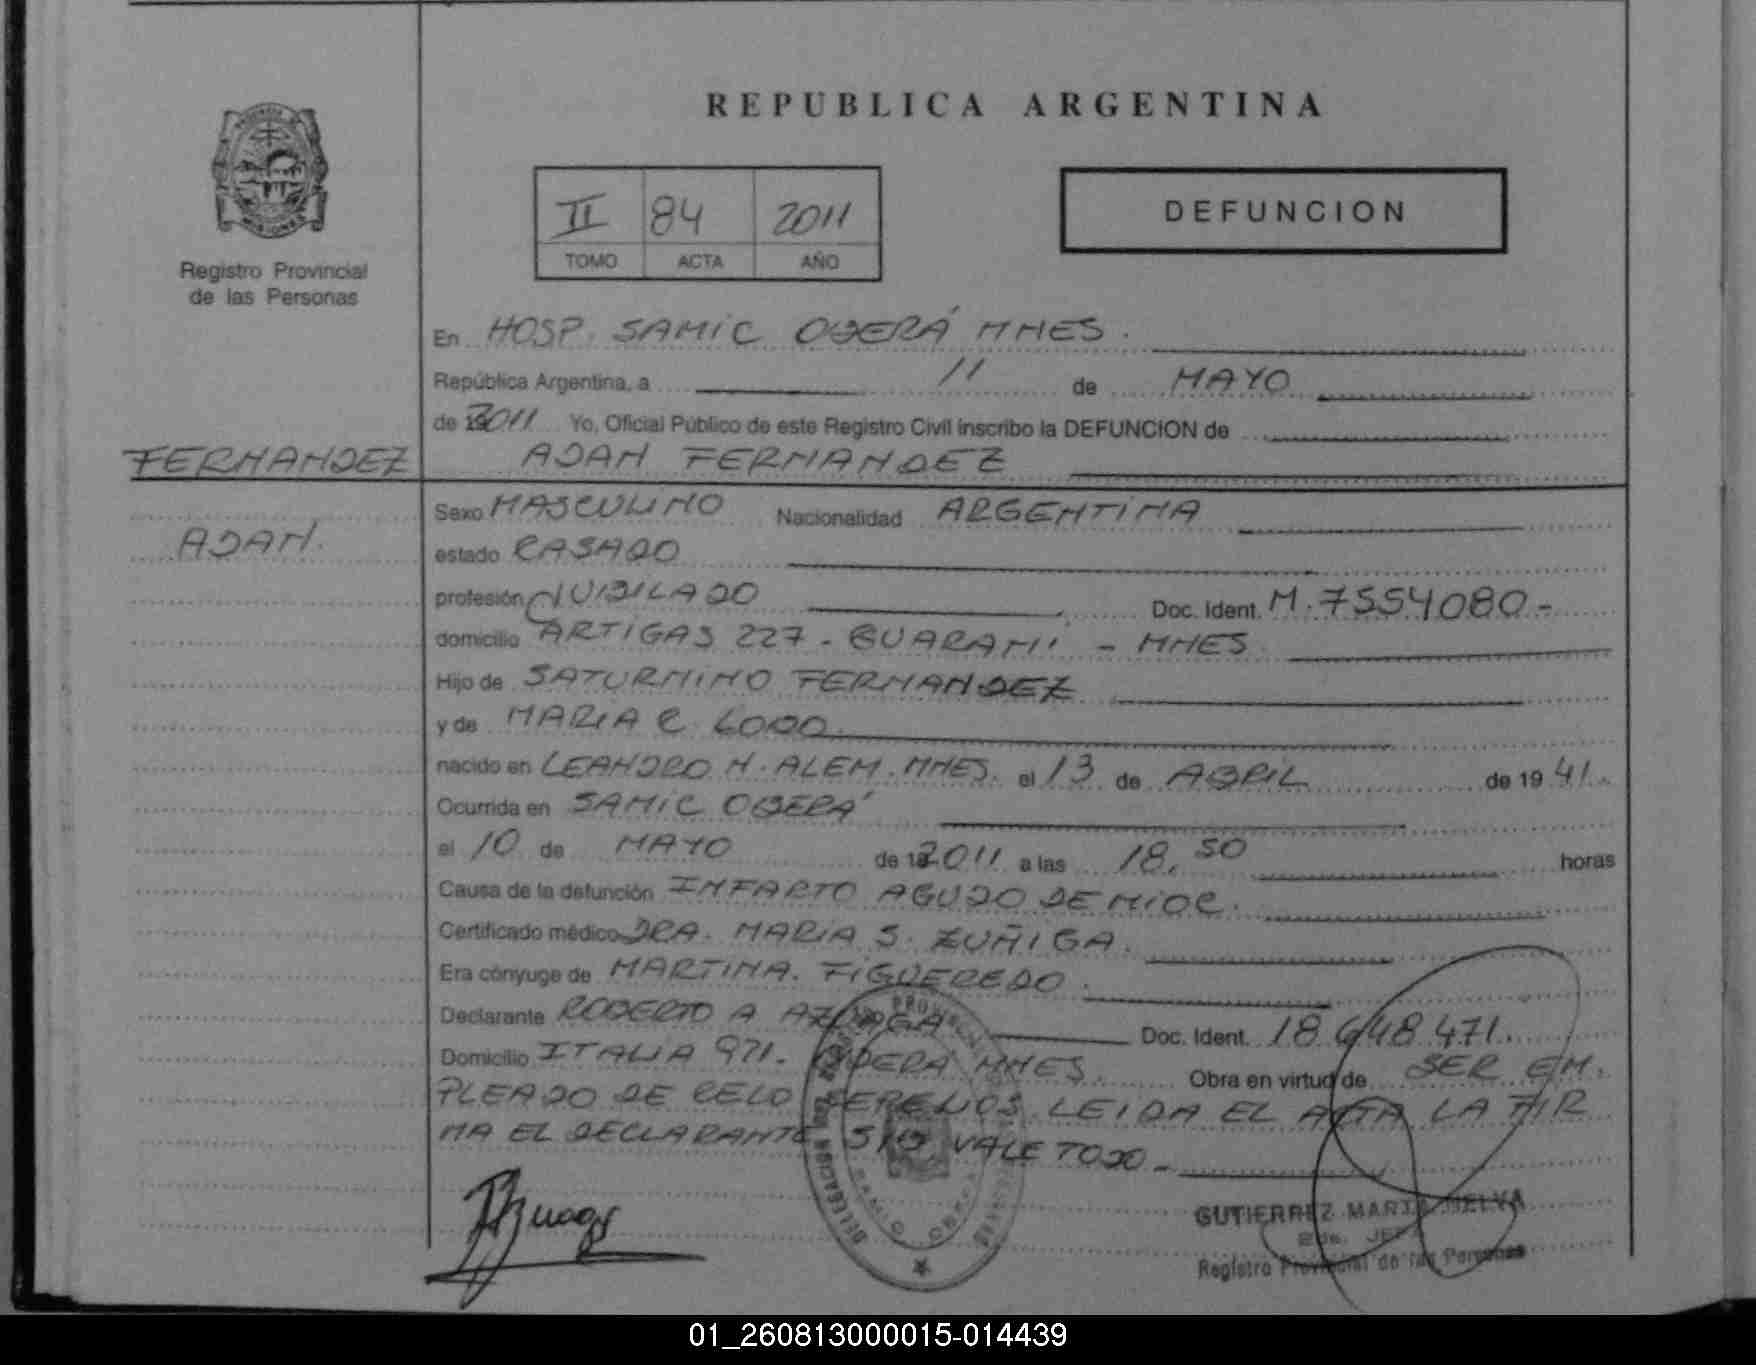 REPUBLICA ARGENTINA
II 84 2011
TOMO ACTA AÑO
DEFUNCION
Registro Provincial
de las Personas
En HOSP. SAMIC OBERÁ MNES.
República Argentina, a 11 de MAYO
de 2011 Yo, Oficial Público de este Registro Civil inscribo la DEFUNCION de
FERNANDEZ ADAN FERNANDEZ
ADAN.
Sexo MASCULINO Nacionalidad ARGENTINA
estado CASADO
profesión JUBILADO Doc. Ident. M. 7554080.-
domicilio ARTIGAS 227 - GUARANI - MNES
Hijo de SATURNINO FERNANDEZ
y de MARIA C. LODO
nacido en LEANDRO N. ALEM. MNES. el 13 de ABRIL de 1941.
Ocurrida en SAMIC OBERÁ
el 10 de MAYO de 2011 a las 18,50 horas
Causa de la defunción INFARTO AGUDO DE MIOC.
Certificado médico DRA. MARIA S. ZUÑIGA.
Era cónyuge de MARTINA. FIGUEREDO.
Declarante ROBERTO A AZUAGA Doc. Ident. 18.648.471.
Domicilio ITALIA 971. OBERA MNES. Obra en virtud de SER EM.
PLEADO DE CELO SERENOS. LEIDA EL ACTA LA FIR
MA EL DECLARANTE S/B VALE TODO -
GUTIERREZ MARTA SELVA
JEFE
Registro Provincial de las Personas
01_260813000015-014439